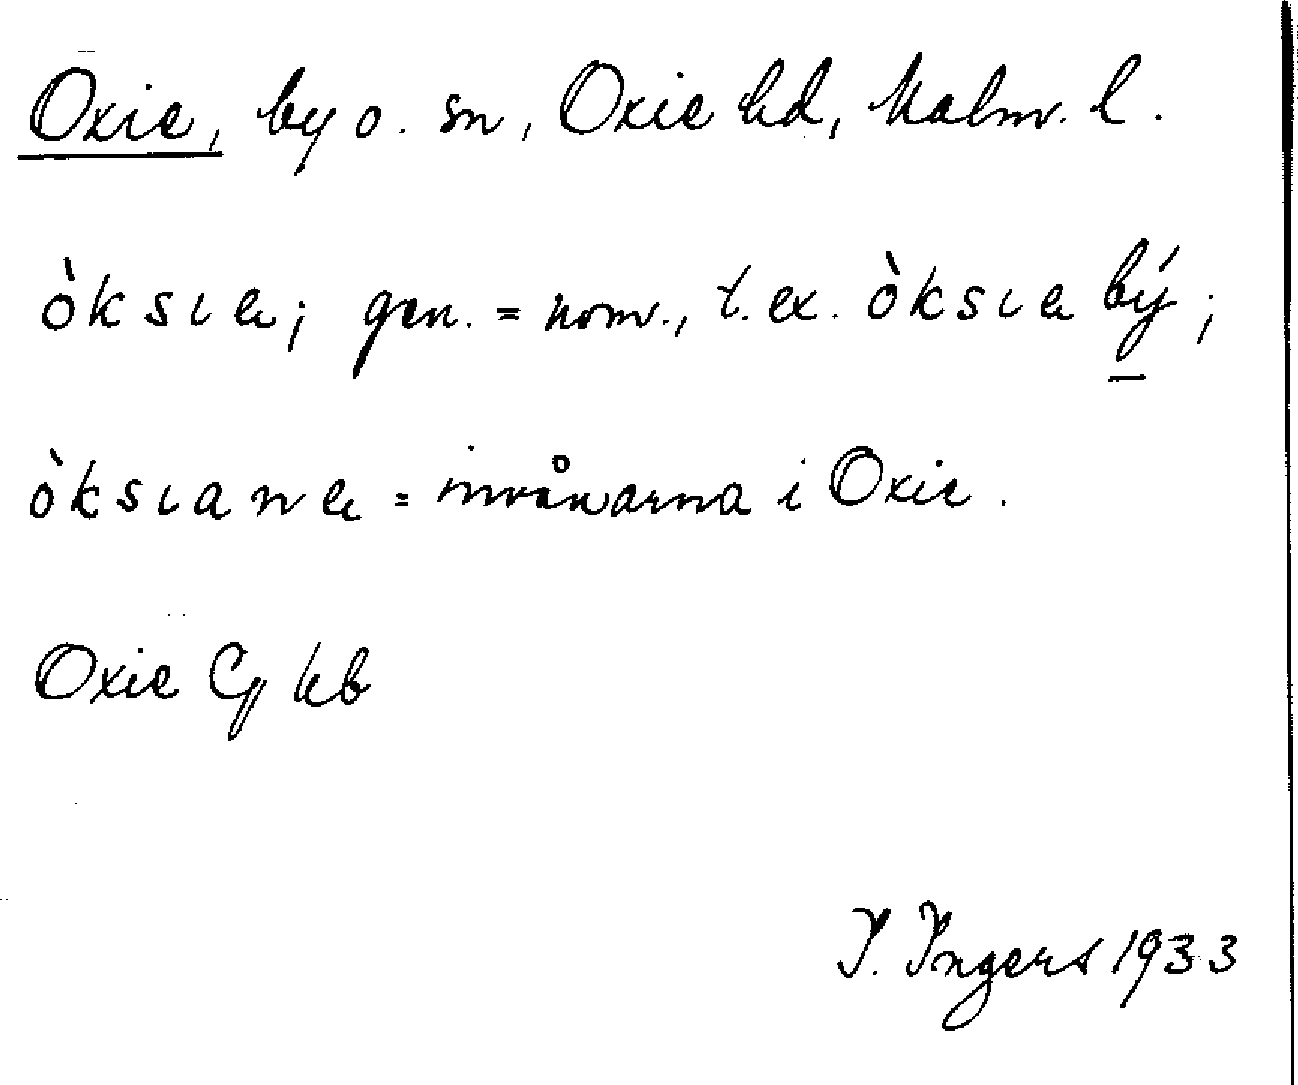 Oxie, by o. sn, Oxie hd, Malm. l.
òksıa; gen. = nom., t. ex. òksıa bý;
òksıana = invånarna i Oxie.
Oxie Cg kb
I. Ingers 1933